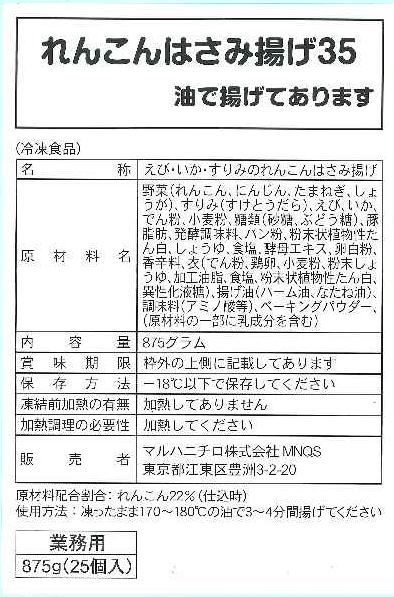 れんこんはさみ揚げ35
油で揚げてあります
(冷凍食品)
名称 えび・いか・すりみのれんこんはさみ揚げ
原材料名 野菜(れんこん、にんじん、たまねぎ、しょ
うが)、すりみ(すけとうだら)、えび、いか、
でん粉、小麦粉、糖類(砂糖、ぶどう糖)、豚
脂肪、発酵調味料、パン粉、粉末状植物性た
ん白、しょうゆ、食塩、酵母エキス、卵白粉、
香辛料、衣(でん粉、鶏卵、小麦粉、粉末しょ
うゆ、加工油脂、食塩、粉末状植物性たん白、
異性化液糖)、揚げ油(パーム油、なたね油)、
調味料(アミノ酸等)、ベーキングパウダー、
(原材料の一部に乳成分を含む)
内容量 875グラム
賞味期限 枠外の上側に記載してあります
保存方法 −18℃以下で保存してください
凍結前加熱の有無 加熱してありません
加熱調理の必要性 加熱してください
販売者 マルハニチロ株式会社 MNQS
東京都江東区豊洲3-2-20
原材料配合割合:れんこん22%(仕込時)
使用方法:凍ったまま170〜180℃の油で3〜4分間揚げてください
業務用
875g(25個入)